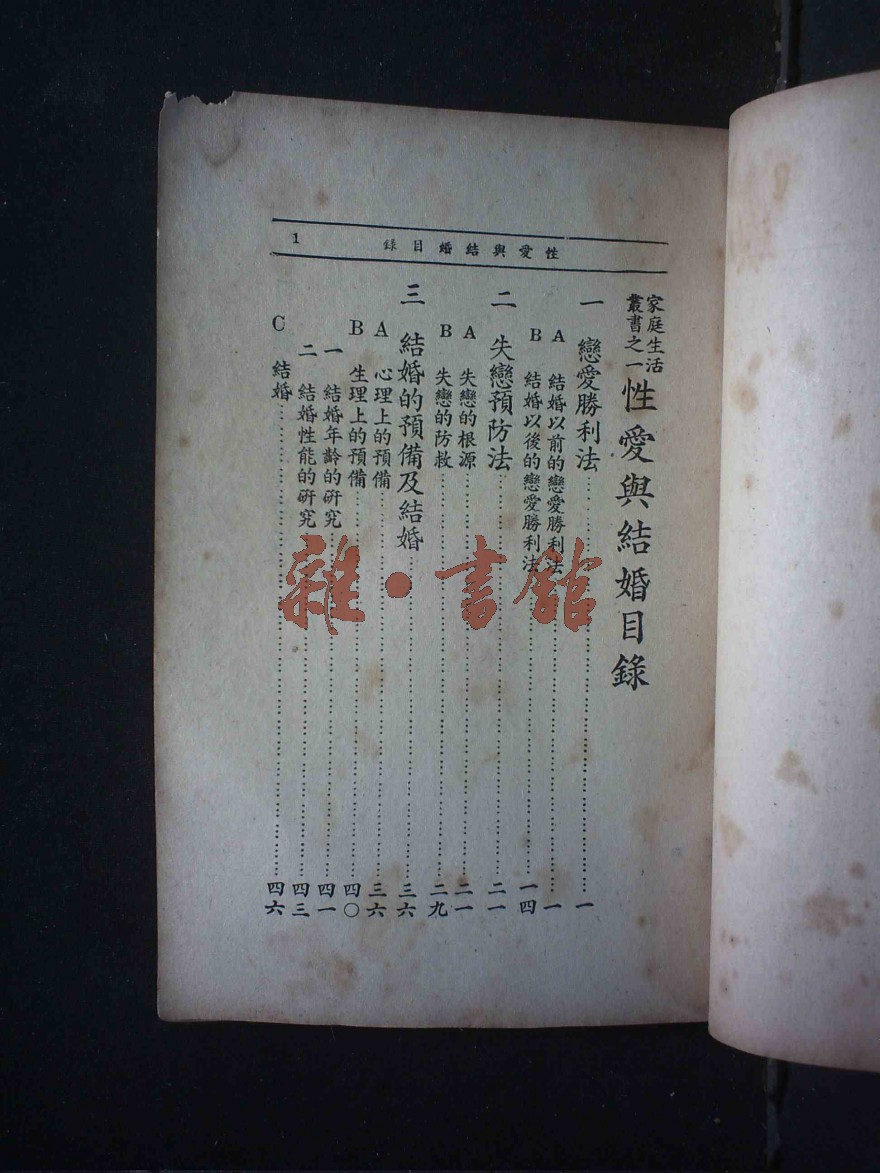 性愛與結婚目錄 1
家庭生活
叢書之一
性愛與結婚目錄
一 戀愛勝利法……一
A 結婚以前的戀愛勝利法……一
B 結婚以後的戀愛勝利法……一四
二 失戀預防法……二一
A 失戀的根源……二一
B 失戀的防救……二九
三 結婚的預備及結婚……三六
A 心理上的預備……三六
B 生理上的預備……四〇
一 結婚年齡的研究……四一
二 結婚性能的研究……四三
C 結婚……四六
雜·書館